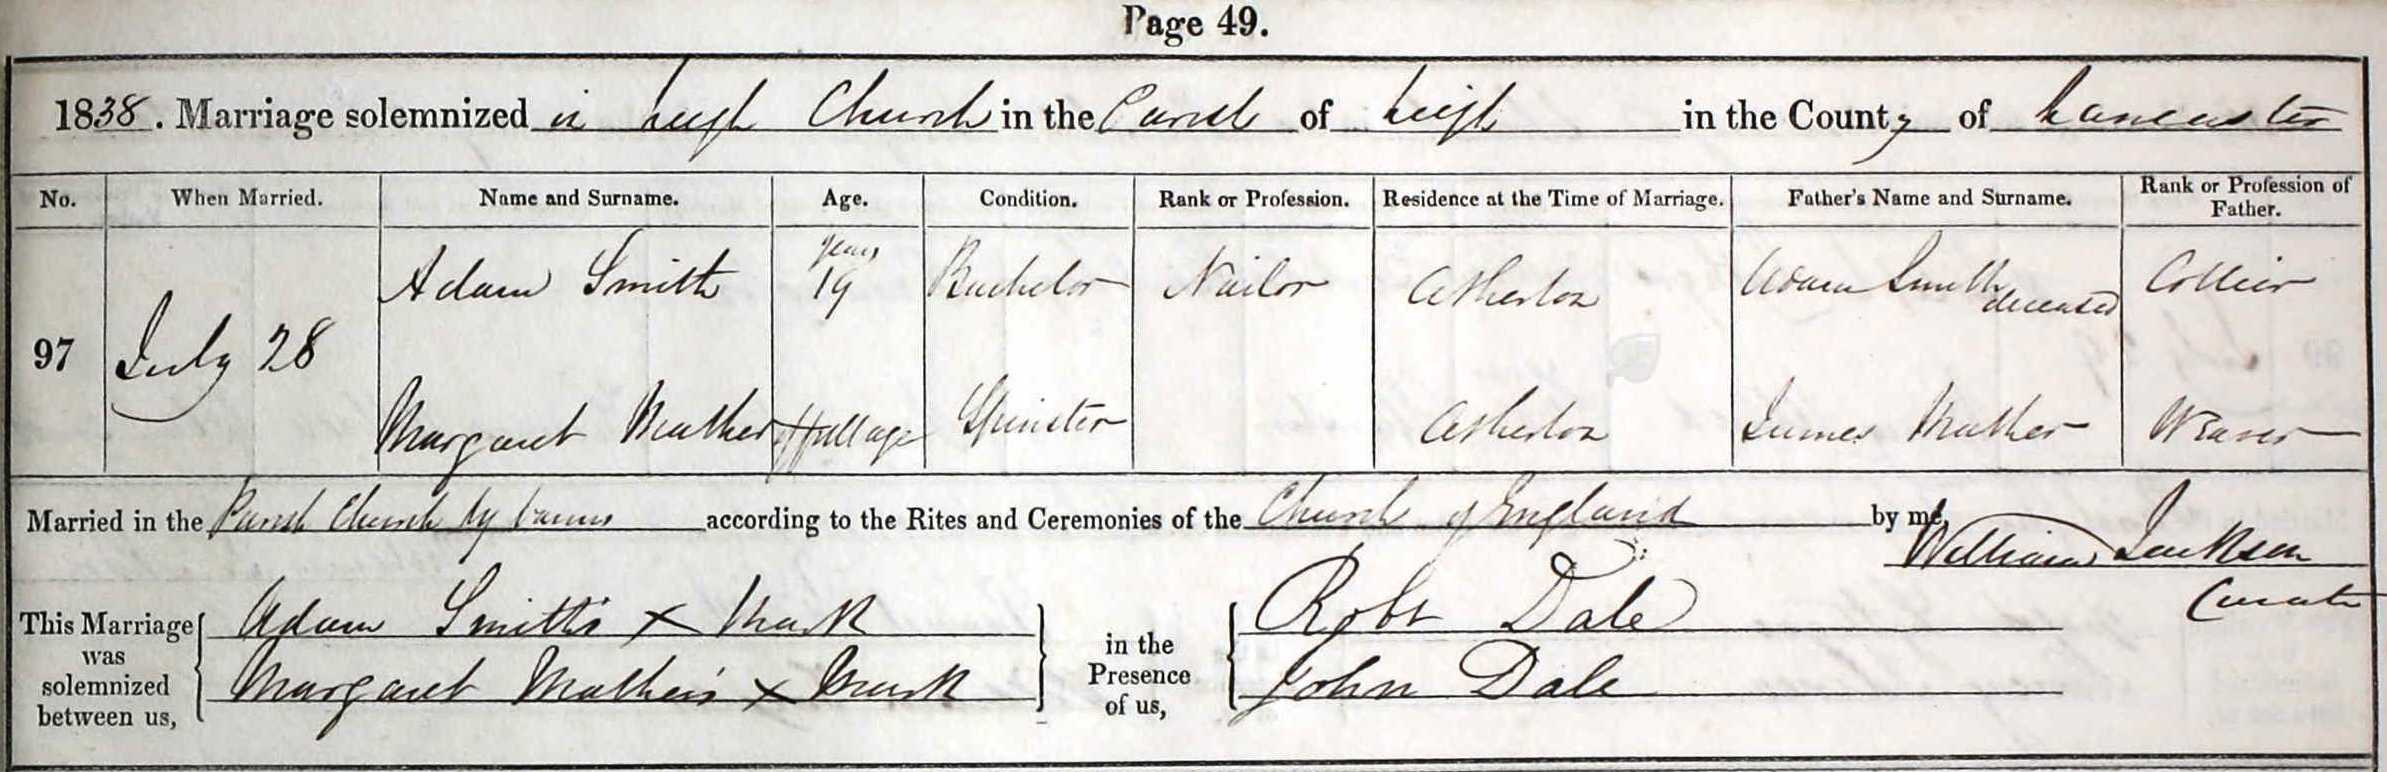 Page 49.
1838. Marriage solemnized in Leigh Church in the Parish of Leigh in the County of Lancaster
No. When Married. Name and Surname. Age. Condition. Rank or Profession. Residence at the Time of Marriage. Father's Name and Surname. Rank or Profession of Father.
97 July 28 Adam Smith years 19 Bachelor Nailor Atherton Adam Smith deceased Collier
Margaret Mather of full age Spinster Atherton James Mather Weaver
Married in the Parish Church by banns according to the Rites and Ceremonies of the Church of England by me,
William Jackson
Curate
This Marriage was solemnized between us, Adam Smith's x Mark
Margaret Mather's x Mark
in the Presence of us, Robt Dale
John Dale